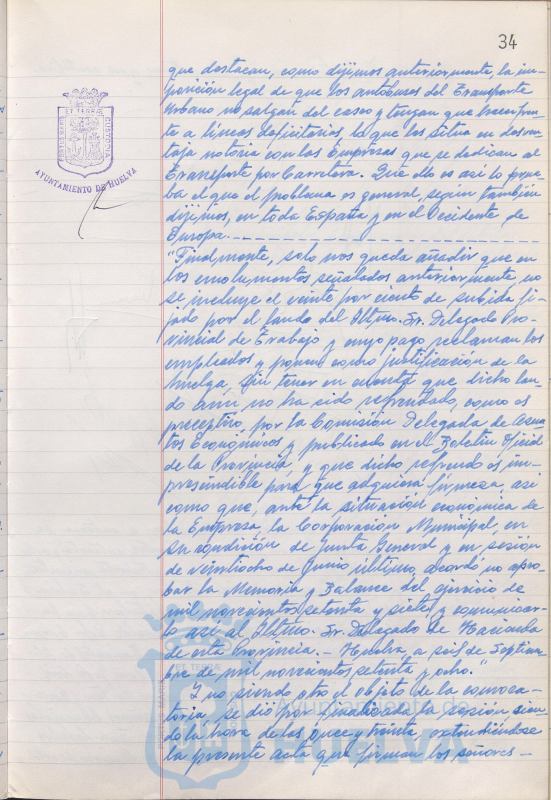 34
PORTUS MARIS
ET TERRAE
CUSTODIA
AYUNTAMIENTO DE HUELVA
que destacan, como dijimos anteriormente, la im-
posición legal de que los autobuses del Transporte
Urbano no salgan del casco y tengan que hacer fren-
te a líneas deficitarias, lo que los situa en desven-
taja notoria con las Empresas que se dedican al
Transporte por Carretera. Que ello es así lo prue-
ba el que el problema es general, según también
dijimos, en toda España y en el Occidente de
Europa.
"Finalmente, solo nos queda añadir que en
los emolumentos señalados anteriormente no
se incluye el veinte por ciento de subida fi-
jado por el laudo del Iltmo. Sr. Delegado Pro-
vincial de Trabajo y cuyo pago reclaman los
empleados y ponen como justificación de la
huelga, sin tener en cuenta que dicho lau-
do aun no ha sido refrendado, como es
preceptivo, por la Comisión Delegada de Asun-
tos Económicos y publicado en el Boletín Oficial
de la Provincia, y que dicho refrendo es im-
prescindible para que adquiera firmeza así
como que, ante la situación económica de
la Empresa, la Corporación Municipal, en
su condición de Junta General y en sesión
de veintiocho de Junio último, acordó no apro-
bar la Memoria y Balance del ejercicio de
mil novecientos setenta y siete y comunicar-
lo así al Iltmo. Sr. Delegado de Hacienda
de esta Provincia. - Huelva, a seis de Septiem-
bre de mil novecientos setenta y ocho."
Y no siendo otro el objeto de la convoca-
toria, se dió por finalizada la sesión sien-
do la hora de las once y treinta, extendiéndose
la presente acta que firman los señores -
Ayuntamiento de
HUELVA